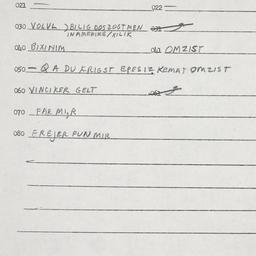 021 — 022 —
030 VOLVL > BILIG DOSZOSTMEN
INAMERIKE/XILIK
040 BIXINIM 041 OMZIST
050 — Q A DU ERIGST EPESIZ KEMAT OMZIST
060 VINCIKER GELT
070 FAK MI,R
080 EREJER FUN MIR